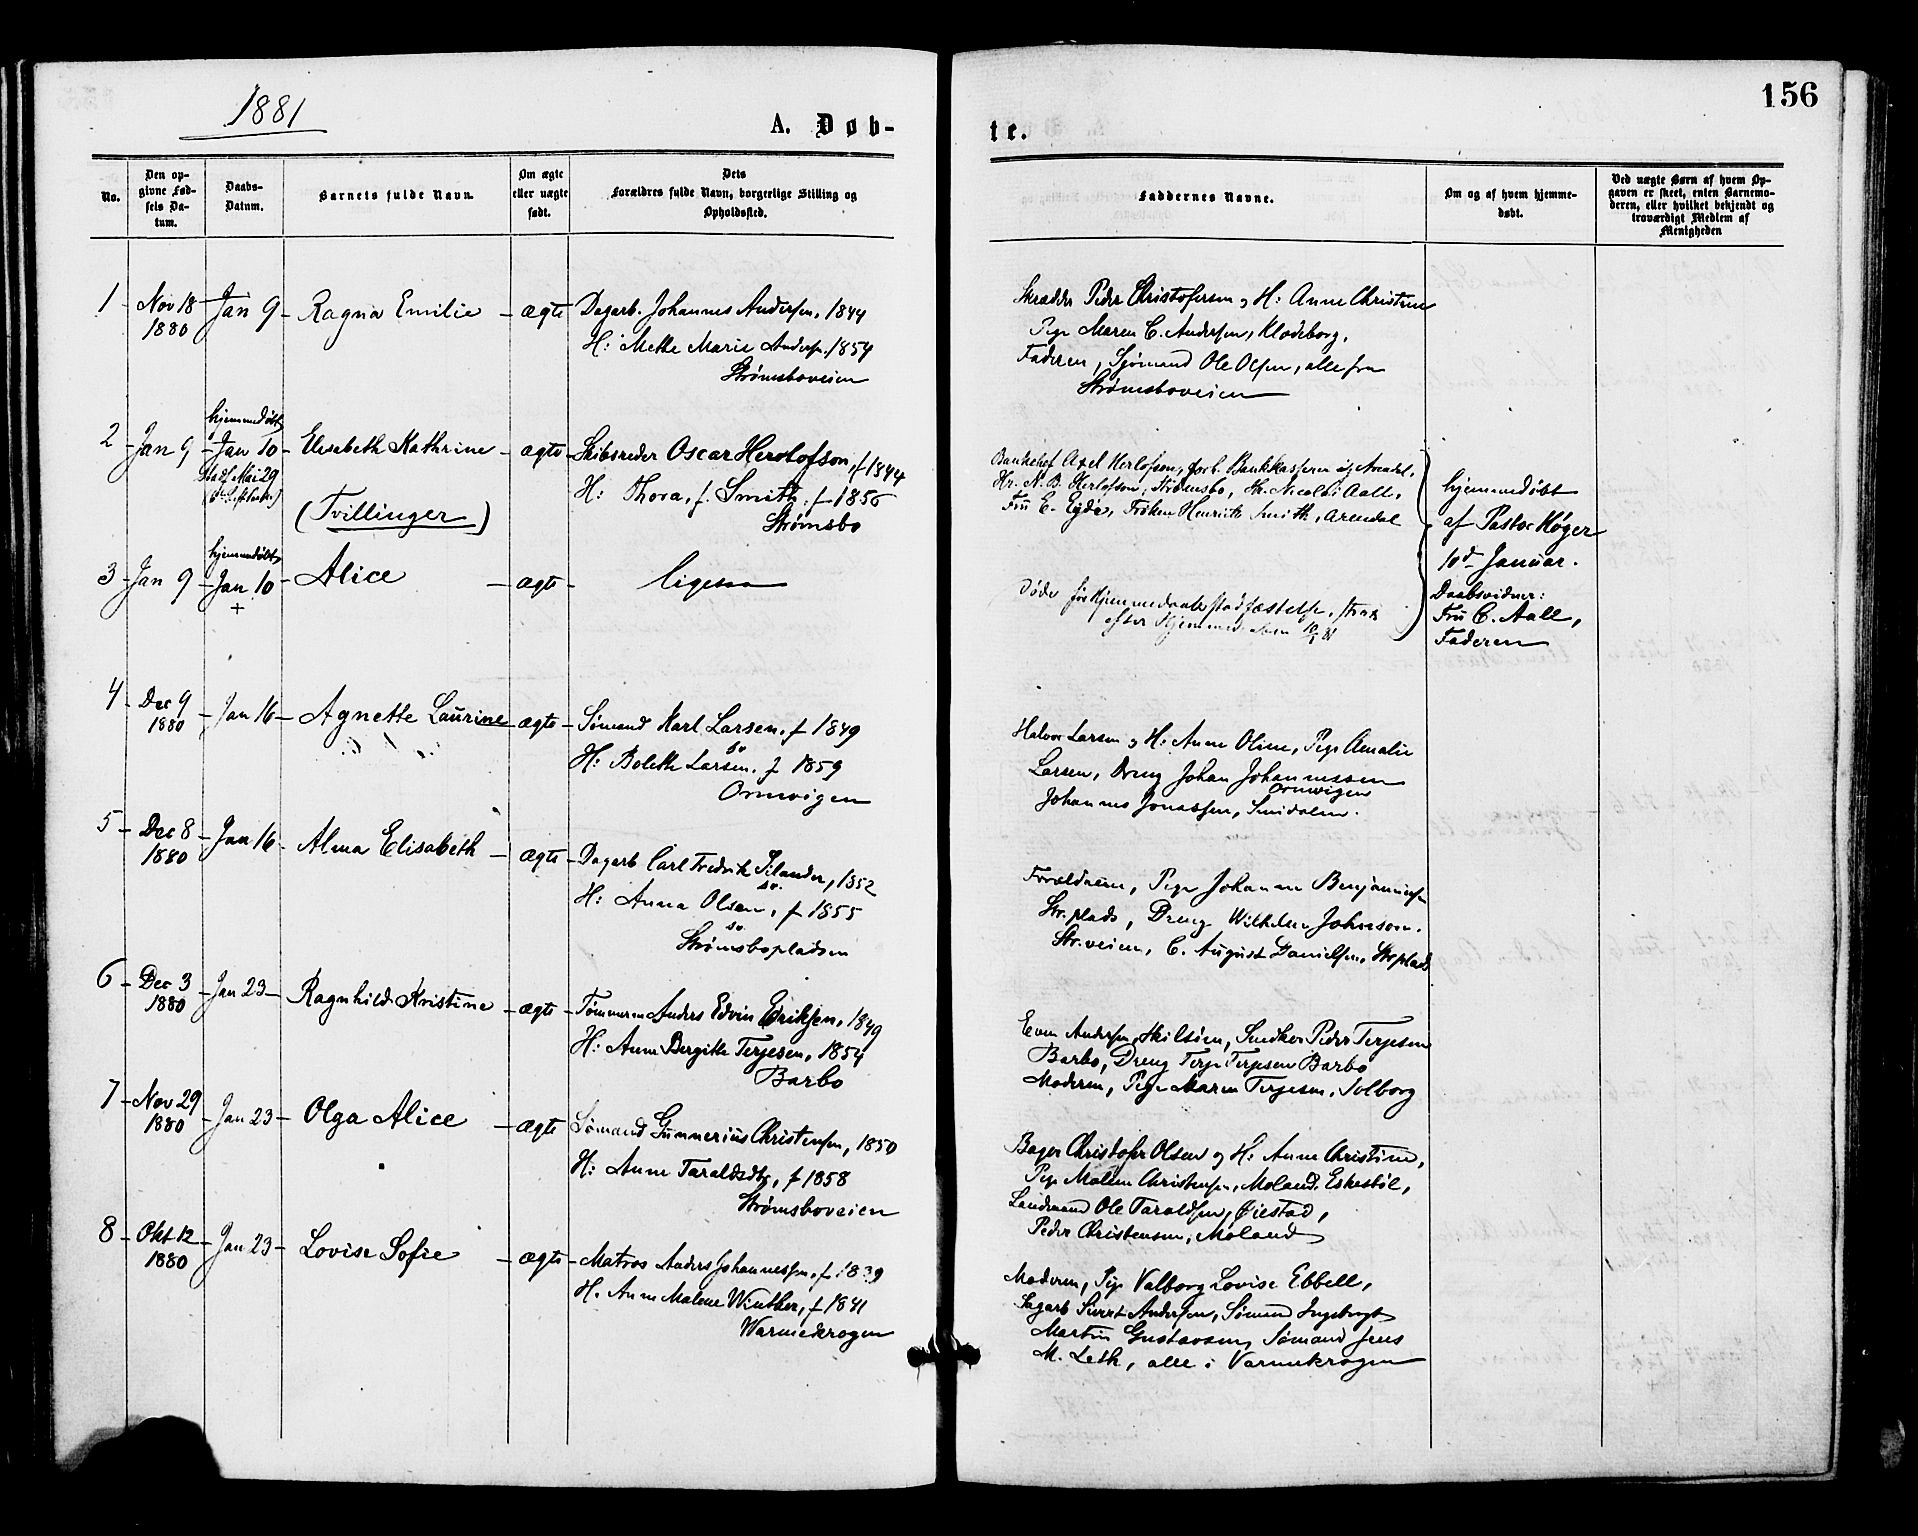 1881
156
A. Døb-
te.
No.
Den op-
givne Fød-
sels Da-
tum.
Daabs-
Datum.
Barnets fulde Navn.
Om ægte
eller uægte
født.
Dets
Forældres fulde Navn, borgerlige Stilling og
Opholdssted.
Faddernes Navne.
Om og af hvem hjemme-
døbt.
Ved uægte Børn af hvem Op-
gaven er skeet, enten Barnemo-
deren, eller hvilket bekjendt og
troværdigt Medlem af
Menigheden
1 Nov 18
1880
Jan 9 Ragna Emilie ægte
Dagarb. Johannes Andersen, 1844
H: Mette Marie Anders. 1854
Strømsboveien
Skrædder Peder Christofersen og H: Anne Christine
Pige Maren C. Andersen, Klodeborg,
Faderen, Sjømand Ole Olsen, alle fra
Strømsboveien
2 Jan 9
hjemmedøbt
Jan 10
Stadf. Mai 29
Elisabeth Kathrine ægte
(Tvillinger)
Skibsreder Oscar Herlofson, f 1844
H: Thora, f. Smith, f 1856
Strømsbo
Bankchef Axel Herlofson, Bankkasserer Arendal,
Hr. N. B. Herlofson, Strømsbo, Hr. Nicolai Aall,
Fru E. Eyde, Frøken Henrikke Smith, Arendal
hjemmedøbt
af Pastor Køyer
10d Januar.
Daabsvidner:
Fru C. Aall,
Faderen
3 Jan 9
hjemmedøbt
Jan 10
+
Alice ægte ligesaa
Døde før Hjemmedaabs stadfæstelse, strax
efter Hjemmedaaben 10/1 81
4 Dec 9
1880
Jan 16 Agnette Laurine ægte
Sømand Karl Larsen, f 1849
H: Bolette Larsen, f 1859
Ormvigen
Halvor Larsen og H: Anne Oline, Pige Amalie
Larsen, Dreng Johan Johannessen
Ormvigen
Johannes Jonassen, Smidalen.
5 Dec 8
1880
Jan 16 Alma Elisabeth ægte
Dagarb Carl Fredrik Silander, 1852
sv.
H: Anna Olsen, f 1855
sv.
Strømsbopladsen
Forældrene, Pige Johanne Benjaminsen
Str.plads, Dreng Wilhelm Johnson.
Str.veien, C. August Danielsen, Strplads
6 Dec 3
1880
Jan 23 Ragnhild Kristine ægte
Tømmerm Anders Edvin Eriksen, 1849
H: Anne Bergitte Terjesen, 1854
Barbo
Even Andersen, Skilsøen, Snedker Peder Terjesen
Barbo, Dreng Terje Terjesen Barbo
Moderen, Pige Maren Terjesen, Solborg
7 Nov 29
1880
Jan 23 Olga Alice ægte
Sømand Gunnerius Christensen, 1850
H: Anne Taraldsdtr, f 1858
Strømsboveien
Bager Christofer Olsen og H: Anne Christine,
Pige Malene Christensen, Moland, Eskestøl,
Landmand Ole Taraldsen, Øiestad,
Peder Christensen, Moland
8 Okt 12
1880
Jan 23 Lovise Sofie ægte
Matros Anders Johannessen, f 1839
H. Anne Malene Winther, f 1841
Warmekrogen
Moderen, Pige Valborg Lovise Ebbell,
Dagarb Andersen, Sømand Ingebregt
Martin Gustavsen, Sømand Jens
M. Leth, alle i Varmekrogen